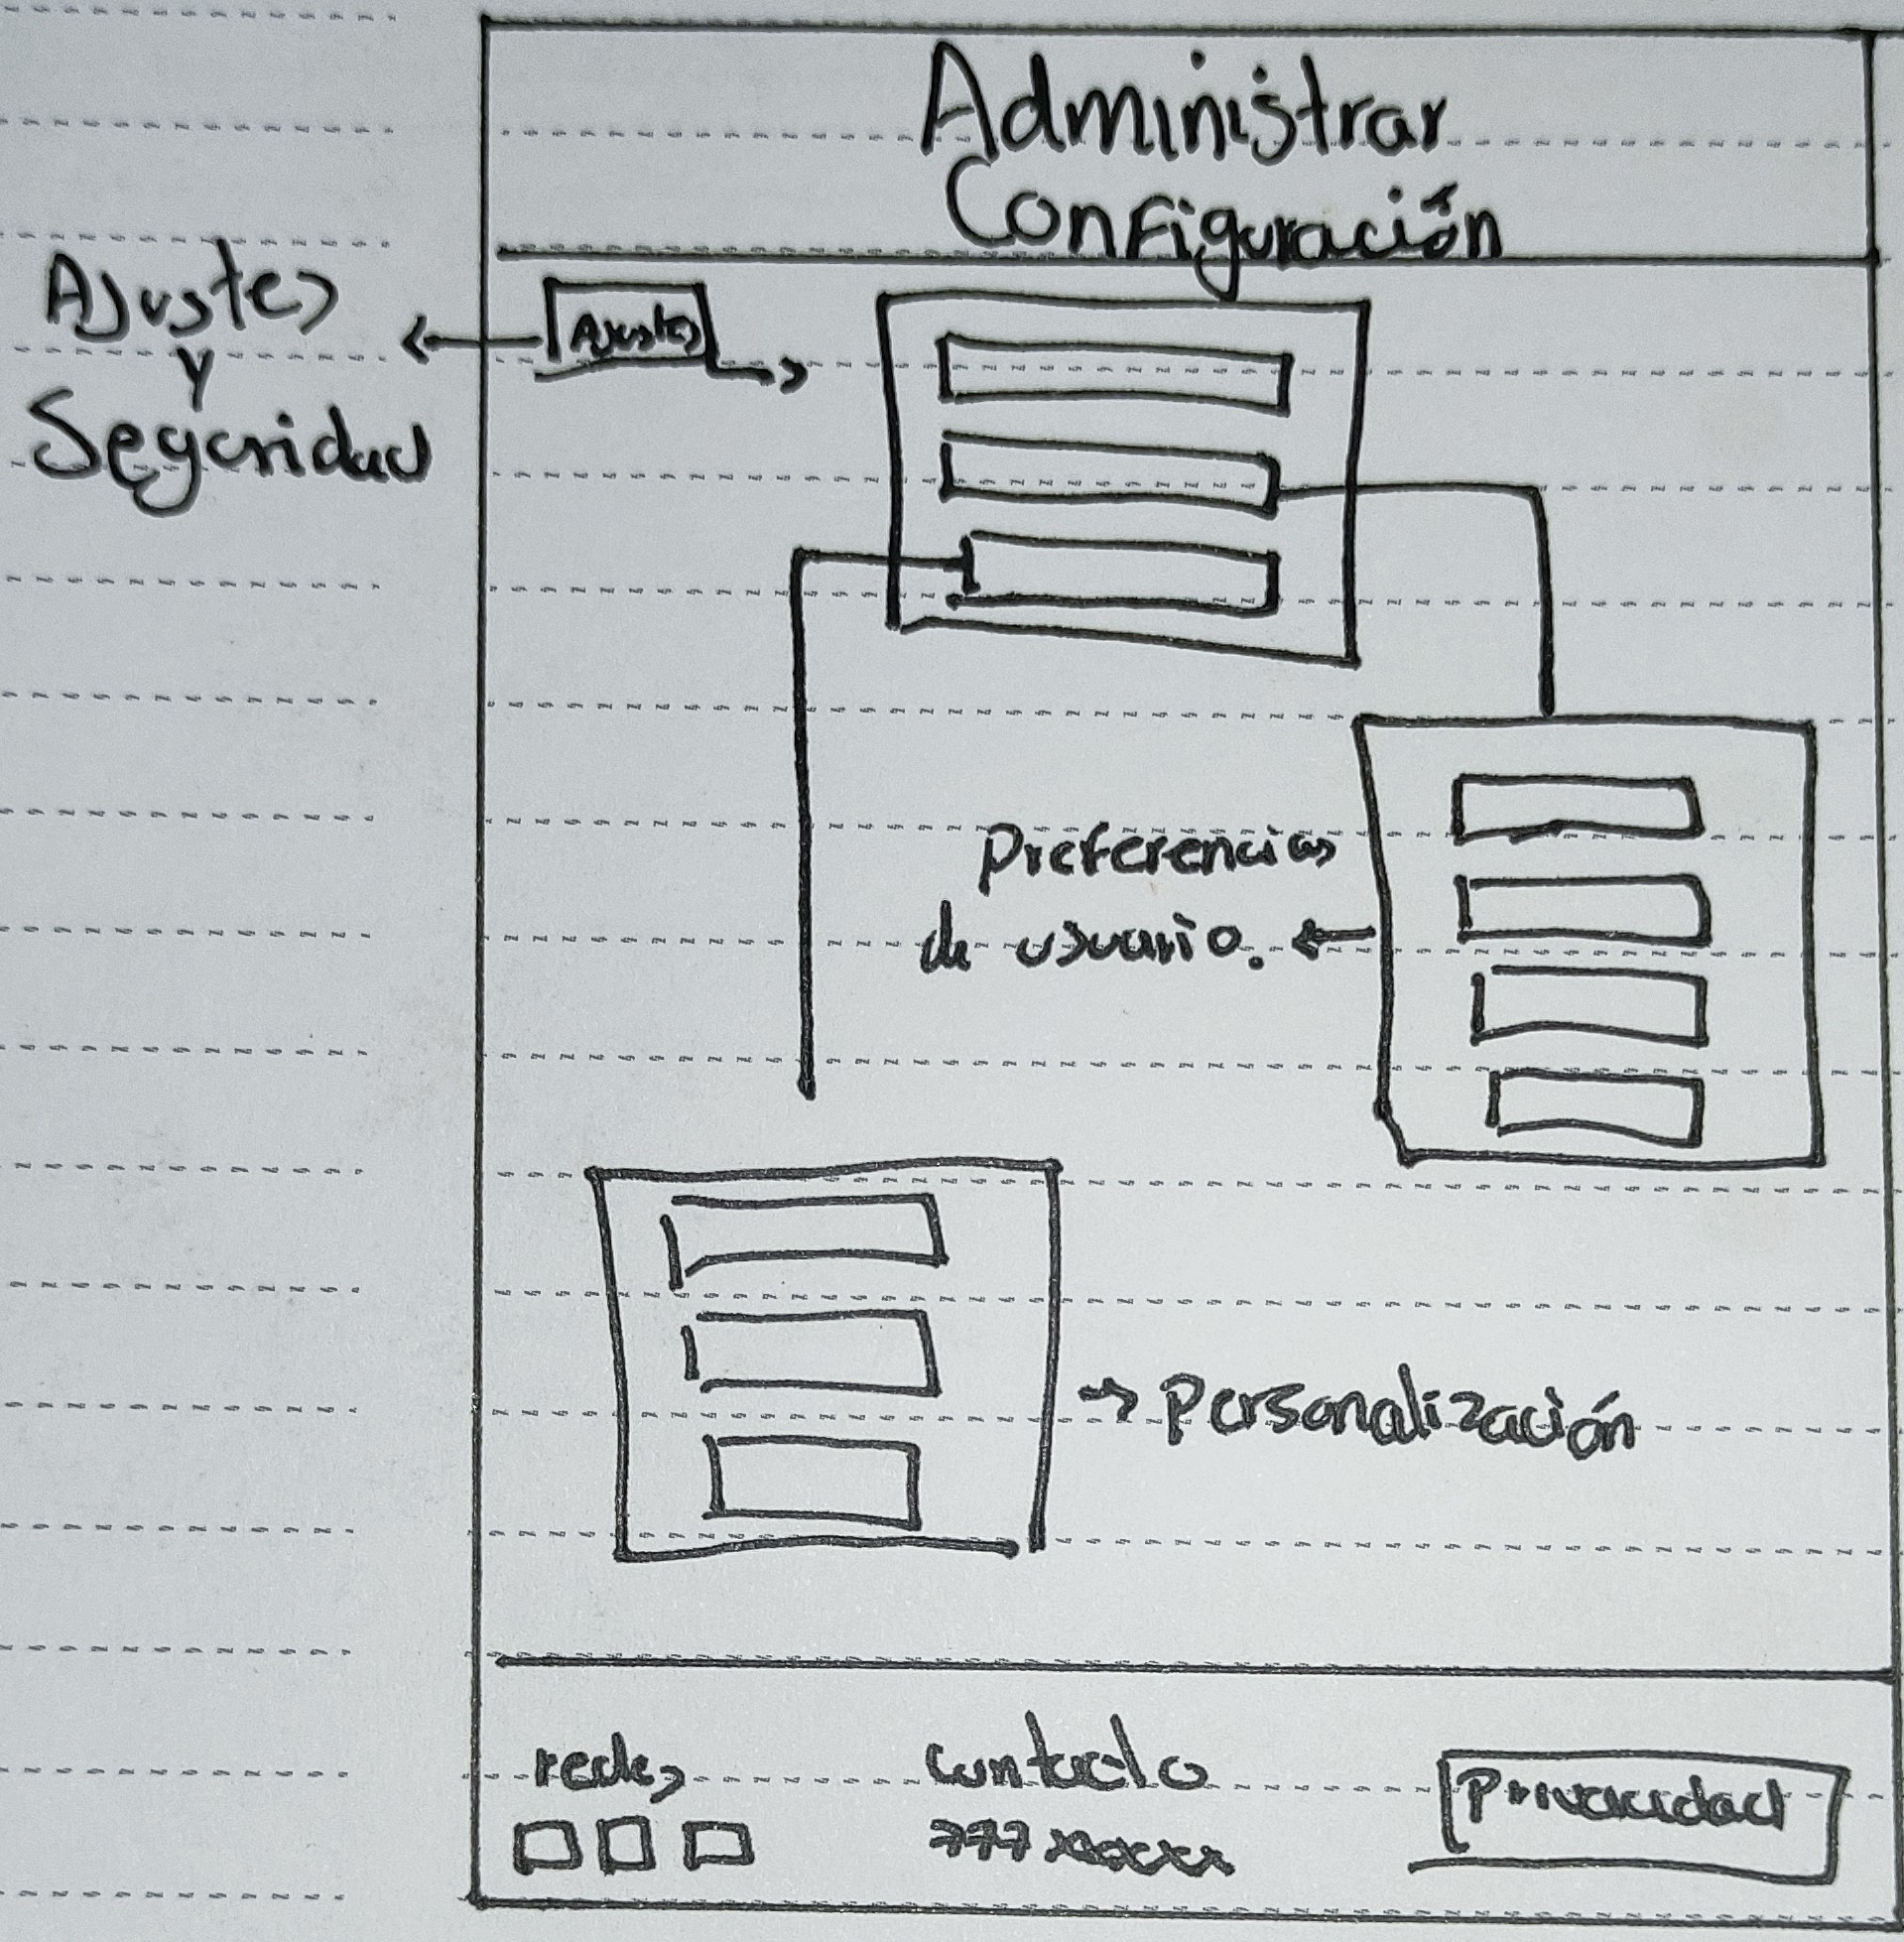 Administrar
Configuración
Ajustes
y
Seguridad
Ajustes
Preferencias
de usuario.
Personalización
redes
Contacto
Privacidad
777 xxxxxx